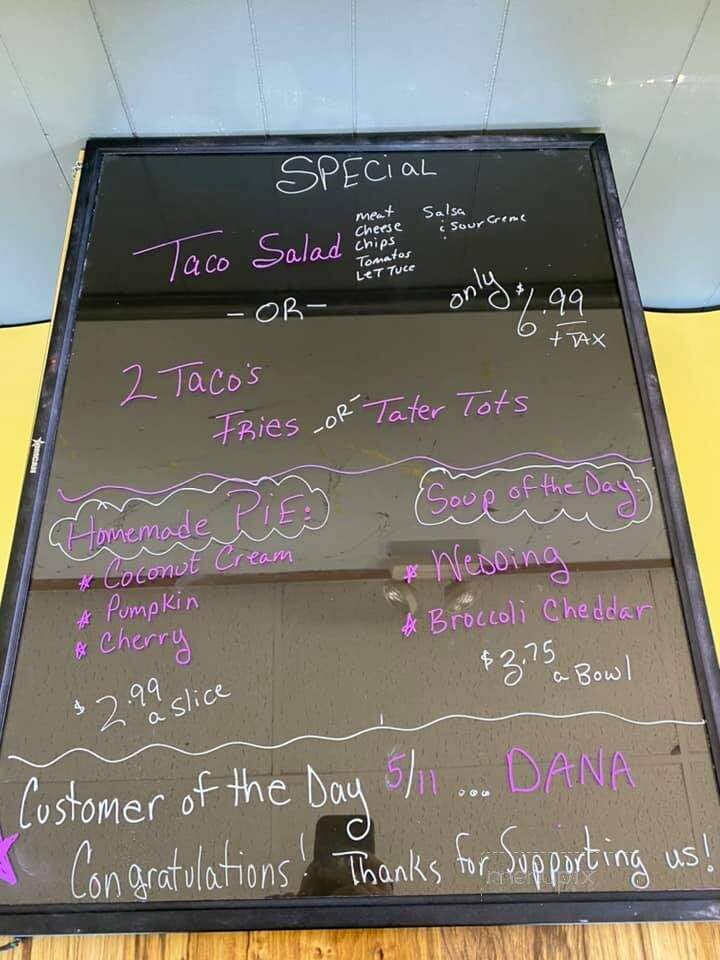 SPECiaL
Taco Salad
meat
cheese
chips
Tomatos
LeTTuce
Salsa
& Sour Creme
- OR -
only $6.99
+ TAX
2 Taco's
FRies -OR- Tater Tots
Homemade PiE:
* Coconut Cream
* Pumpkin
* Cherry
$2.99
a slice
Soup of the Day:
* Wedding
* Broccoli Cheddar
$3.75
a Bowl
Customer of the Day 5/11 ... DANA
Congratulations! Thanks for Supporting us!
menupix